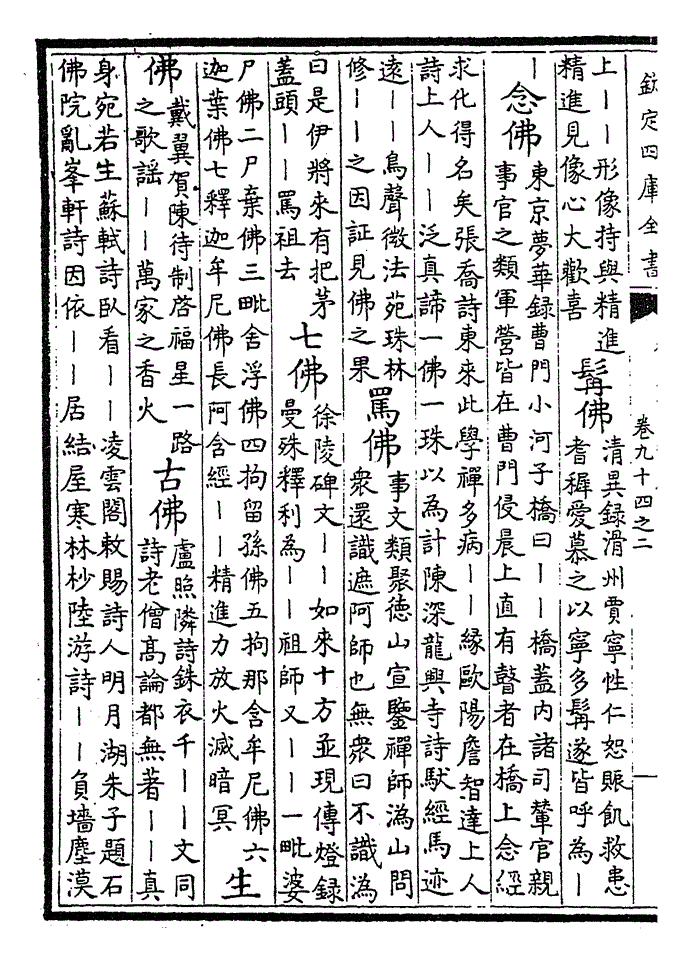 欽定四庫全書
卷九十四之二
上丨丨形像持與精進
精進見像心大歡喜
髯佛
清異録滑州賈寧性仁恕賑飢救患
耆穉愛慕之以寧多髯遂皆呼為丨
丨
念佛
東京夢華録曹門小河子橋曰丨丨橋蓋内諸司輦官親
事官之類軍營皆在曹門侵晨上直有瞽者在橋上念經
求化得名矣張喬詩東來此學禪多病丨丨緣歐陽詹智達上人
詩上人丨丨泛真諦一佛一珠以為計陳深龍興寺詩馱經馬迹
逺丨丨鳥聲微法苑珠林
修丨丨之因証見佛之果
罵佛
事文類聚徳山宣鑒禪師溈山問
衆還識遮阿師也無衆曰不識溈
曰是伊將來有把茅
蓋頭丨丨罵祖去
七佛
徐陵碑文丨丨如來十方並現傳燈録
曼殊釋利為丨丨祖師又丨丨一毗婆
尸佛二尸棄佛三毗舍浮佛四拘留孫佛五拘那含牟尼佛六
迦葉佛七釋迦牟尼佛長阿含經丨丨精進力放火滅暗冥
生
佛
戴翼賀陳待制啓福星一路
之歌謡丨丨萬家之香火
古佛
盧照隣詩銖衣千丨丨文同
詩老僧髙論都無著丨丨真
身宛若生蘇軾詩卧看丨丨凌雲閣敕賜詩人明月湖朱子題石
佛院亂峯軒詩因依丨丨居結屋寒林杪陸游詩丨丨負墻塵漠